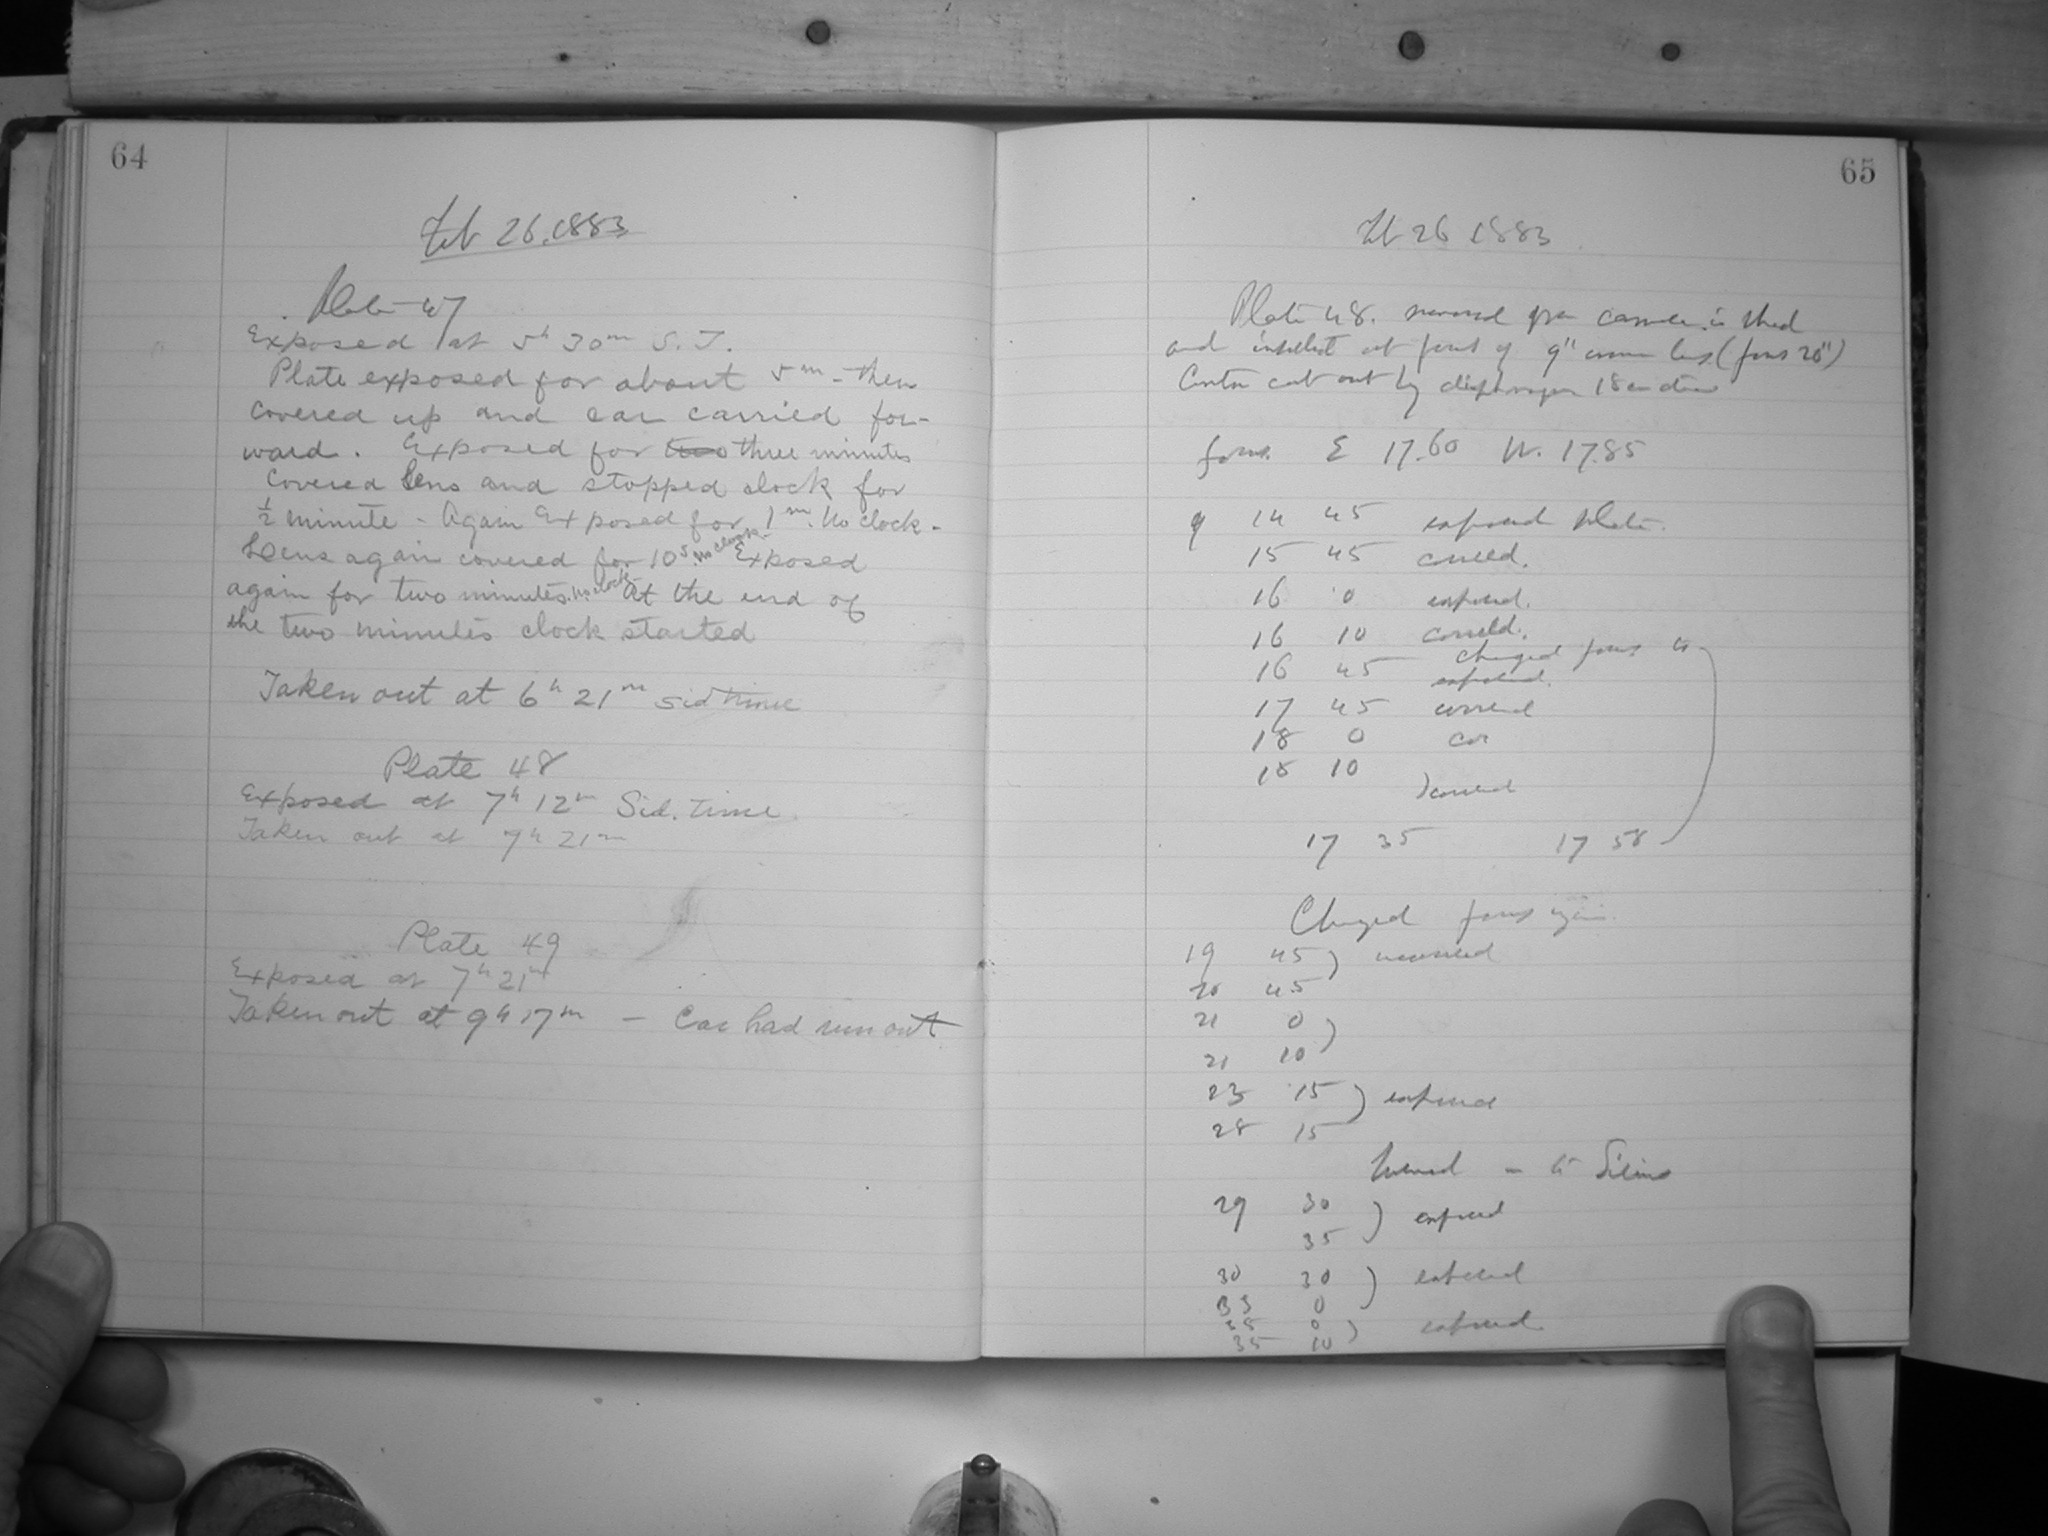 64
Feb 26. 1883
Plate 47
Exposed at 5h 30m S.T.
Plate exposed for about 5m - then
covered up and car carried for-
ward. Exposed for two three minutes
Covered lens and stopped clock for
½ minute - Again Exposed for 1m. No clock -
Lens again covered for 10s. No clock Exposed
again for two minutes. No clock At the end of
the two minutes clock started
Taken out at 6h 21m sid time
Plate 48
Exposed at 7h 12m Sid. time.
Taken out at 7h 21m
Plate 49
Exposed at 7h 21m
Taken out at 9h 17m - Car had run out
65
Feb 26 1883
Plate 48. removed from camera in shed
and at focus of 9" lens (focus 20")
Center cut out by diaphragm 18
focus E 17.60 W. 17.85
9 14 45 exposed plate.
15 45 covered.
16 0 exposed.
16 10 covered.
changed focus to
16 45 exposed.
17 45 covered
18 0
18 10
covered
17 35 17 58
Changed focus again.
19 45 uncovered
20 45
21 0
21 10
23 15 exposed
28 15
Turned - to Sirius
29 30 exposed
35
30 30 exposed
0
0 exposed
35 10